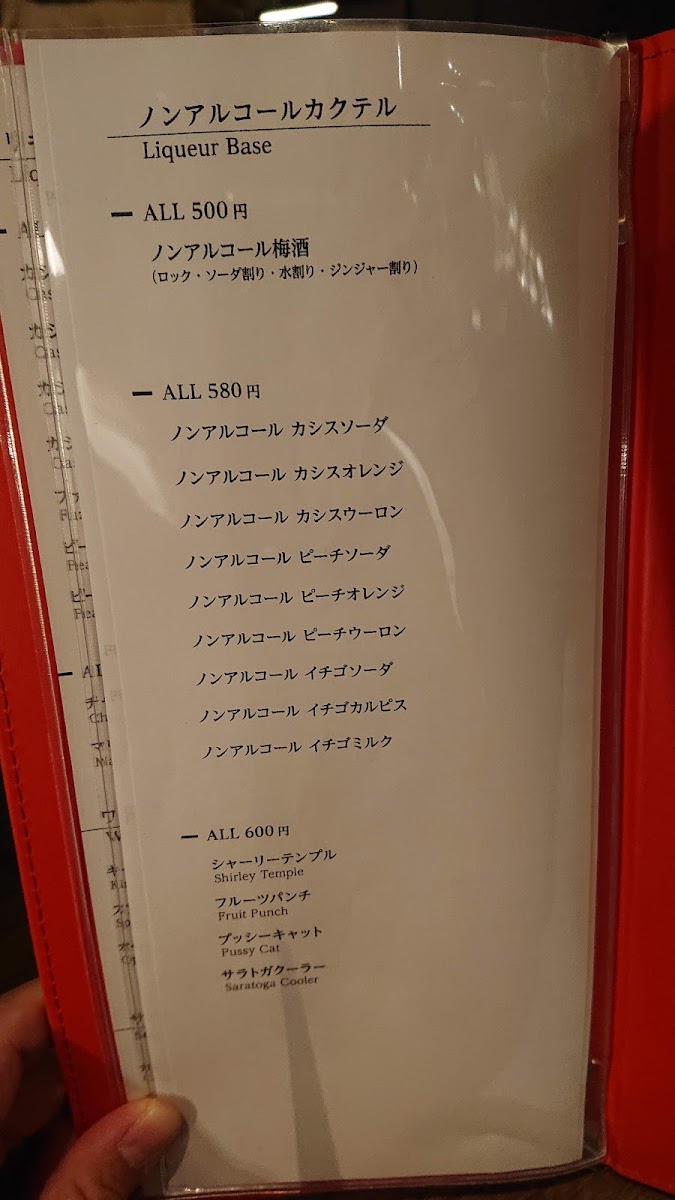 ノンアルコールカクテル
Liqueur Base
ALL 500円
ノンアルコール梅酒
(ロック・ソーダ割り・水割り・ジンジャー割り)
ALL 580円
ノンアルコール カシスソーダ
ノンアルコール カシスオレンジ
ノンアルコール カシスウーロン
ノンアルコール ピーチソーダ
ノンアルコール ピーチオレンジ
ノンアルコール ピーチウーロン
ノンアルコール イチゴソーダ
ノンアルコール イチゴカルピス
ノンアルコール イチゴミルク
ALL 600円
シャーリーテンプル
Shirley Temple
フルーツパンチ
Fruit Punch
プッシーキャット
Pussy Cat
サラトガクーラー
Saratoga Cooler